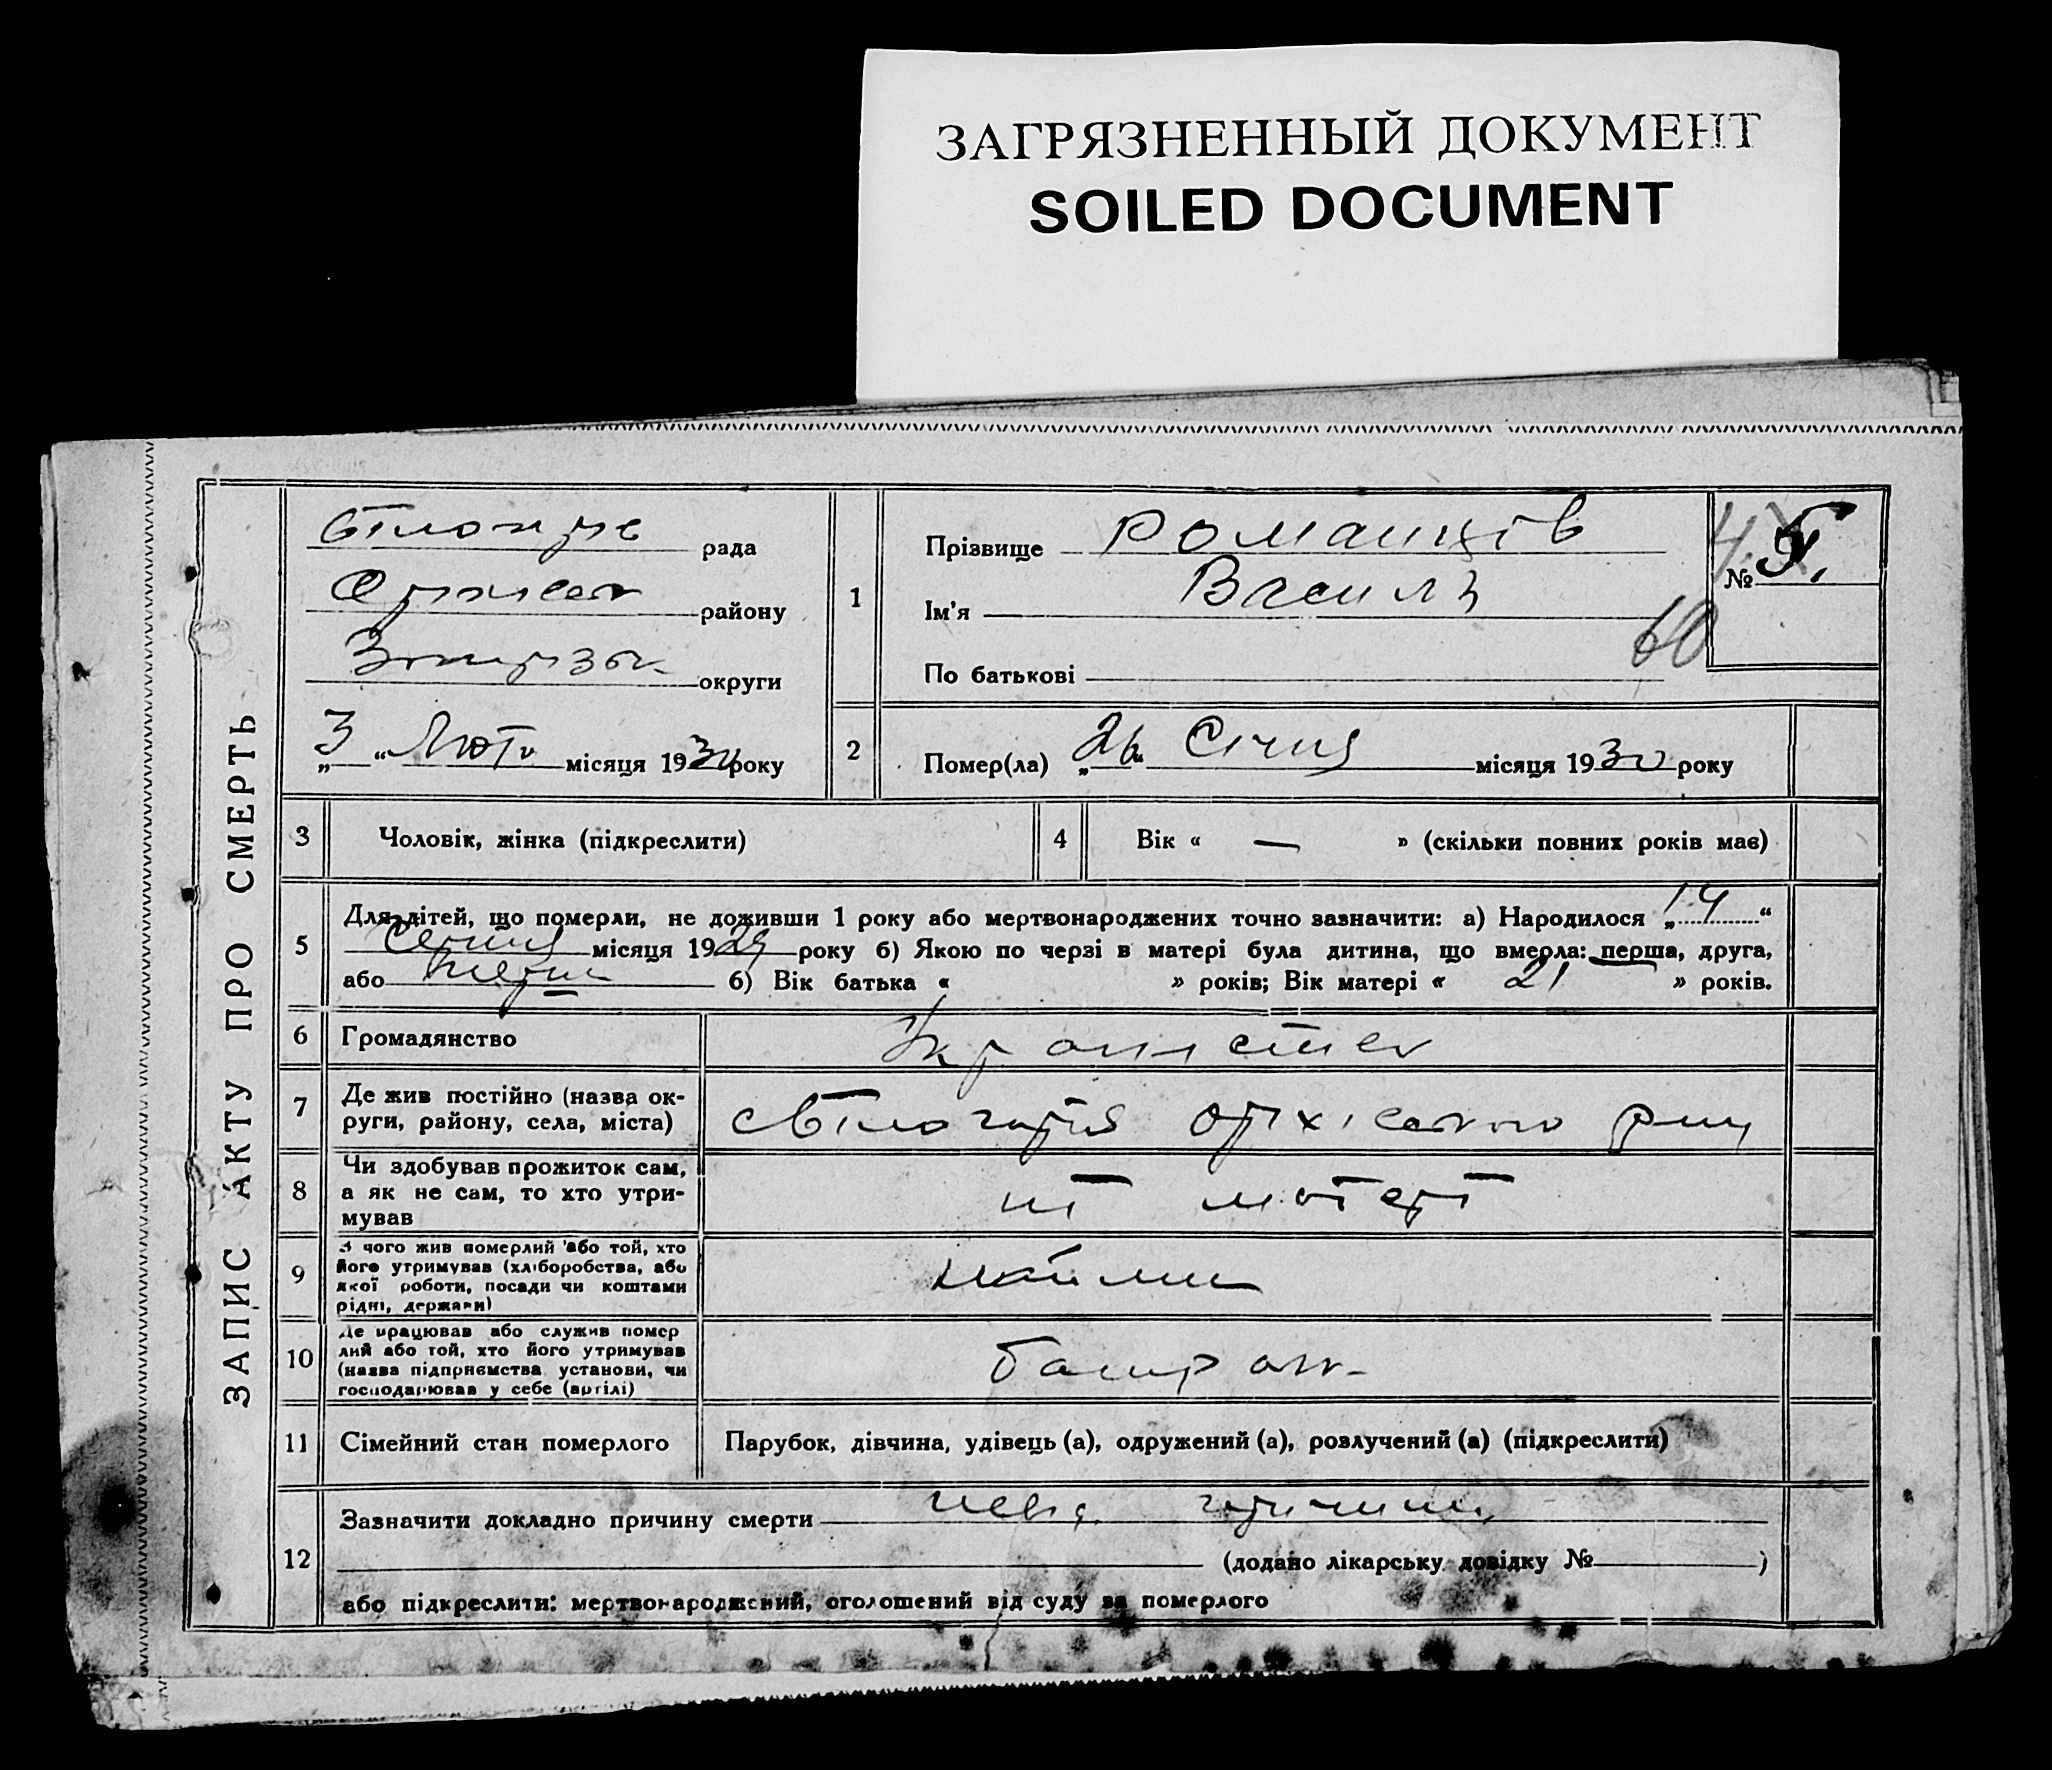 ЗАГРЯЗНЕННЫЙ ДОКУМЕНТ
SOILED DOCUMENT
ЗАПИС АКТУ ПРО СМЕРТЬ
рада
району
округи
„3“ Люто місяця 1930 року
1
Прізвище Романців
Ім'я Василь
По батькові
№ 5.
60
2
Помер(ла) „26“ Січня місяця 1930 року
3 Чоловік, жінка (підкреслити)
4 Вік « — » (скільки повних років має)
5
Для дітей, що померли, не доживши 1 року або мертвонароджених точно зазначити: а) Народилося „14“
Серпня місяця 1929 року б) Якою по черзі в матері була дитина, що вмерла: перша, друга,
або перша б) Вік батька « » років; Вік матері « 21 » років.
6 Громадянство
7 Де жив постійно (назва ок-
руги, району, села, міста)
8 Чи здобував прожиток сам,
а як не сам, то хто утри-
мував
ні матері
9 З чого жив померлий або той, хто
його утримував (хліборобства, або
якої роботи, посади чи коштами
рідні, держави)
10 Де працював або служив помер
лий або той, хто його утримував
(назва підприємства установи, чи
господарював у себе (артілі)
11 Сімейний стан померлого Парубок, дівчина, удівець (а), одружений (а), розлучений (а) (підкреслити)
12
Зазначити докладно причину смерти
(додано лікарську довідку № )
або підкреслити: мертвонароджений, оголошений від суду за померлого